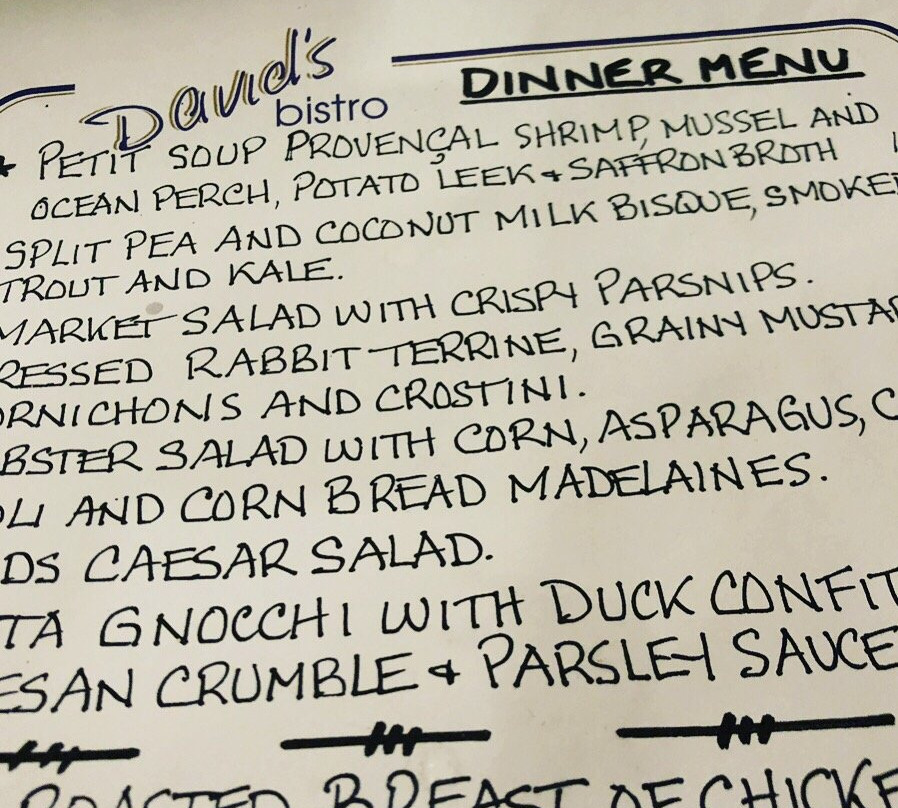 David's
bistro
DINNER MENU
PETIT SOUP PROVENÇAL SHRIMP, MUSSEL AND
OCEAN PERCH, POTATO LEEK & SAFFRON BROTH
SPLIT PEA AND COCONUT MILK BISQUE, SMOKED
TROUT AND KALE.
MARKET SALAD WITH CRISPY PARSNIPS.
RESSED RABBIT TERRINE, GRAINY MUSTAR
ORNICHONS AND CROSTINI.
BSTER SALAD WITH CORN, ASPARAGUS, C
OLI AND CORN BREAD MADELAINES.
DS CAESAR SALAD.
TA GNOCCHI WITH DUCK CONFIT
ESAN CRUMBLE & PARSLEY SAUCE
ROASTED BREAST OF CHICKE